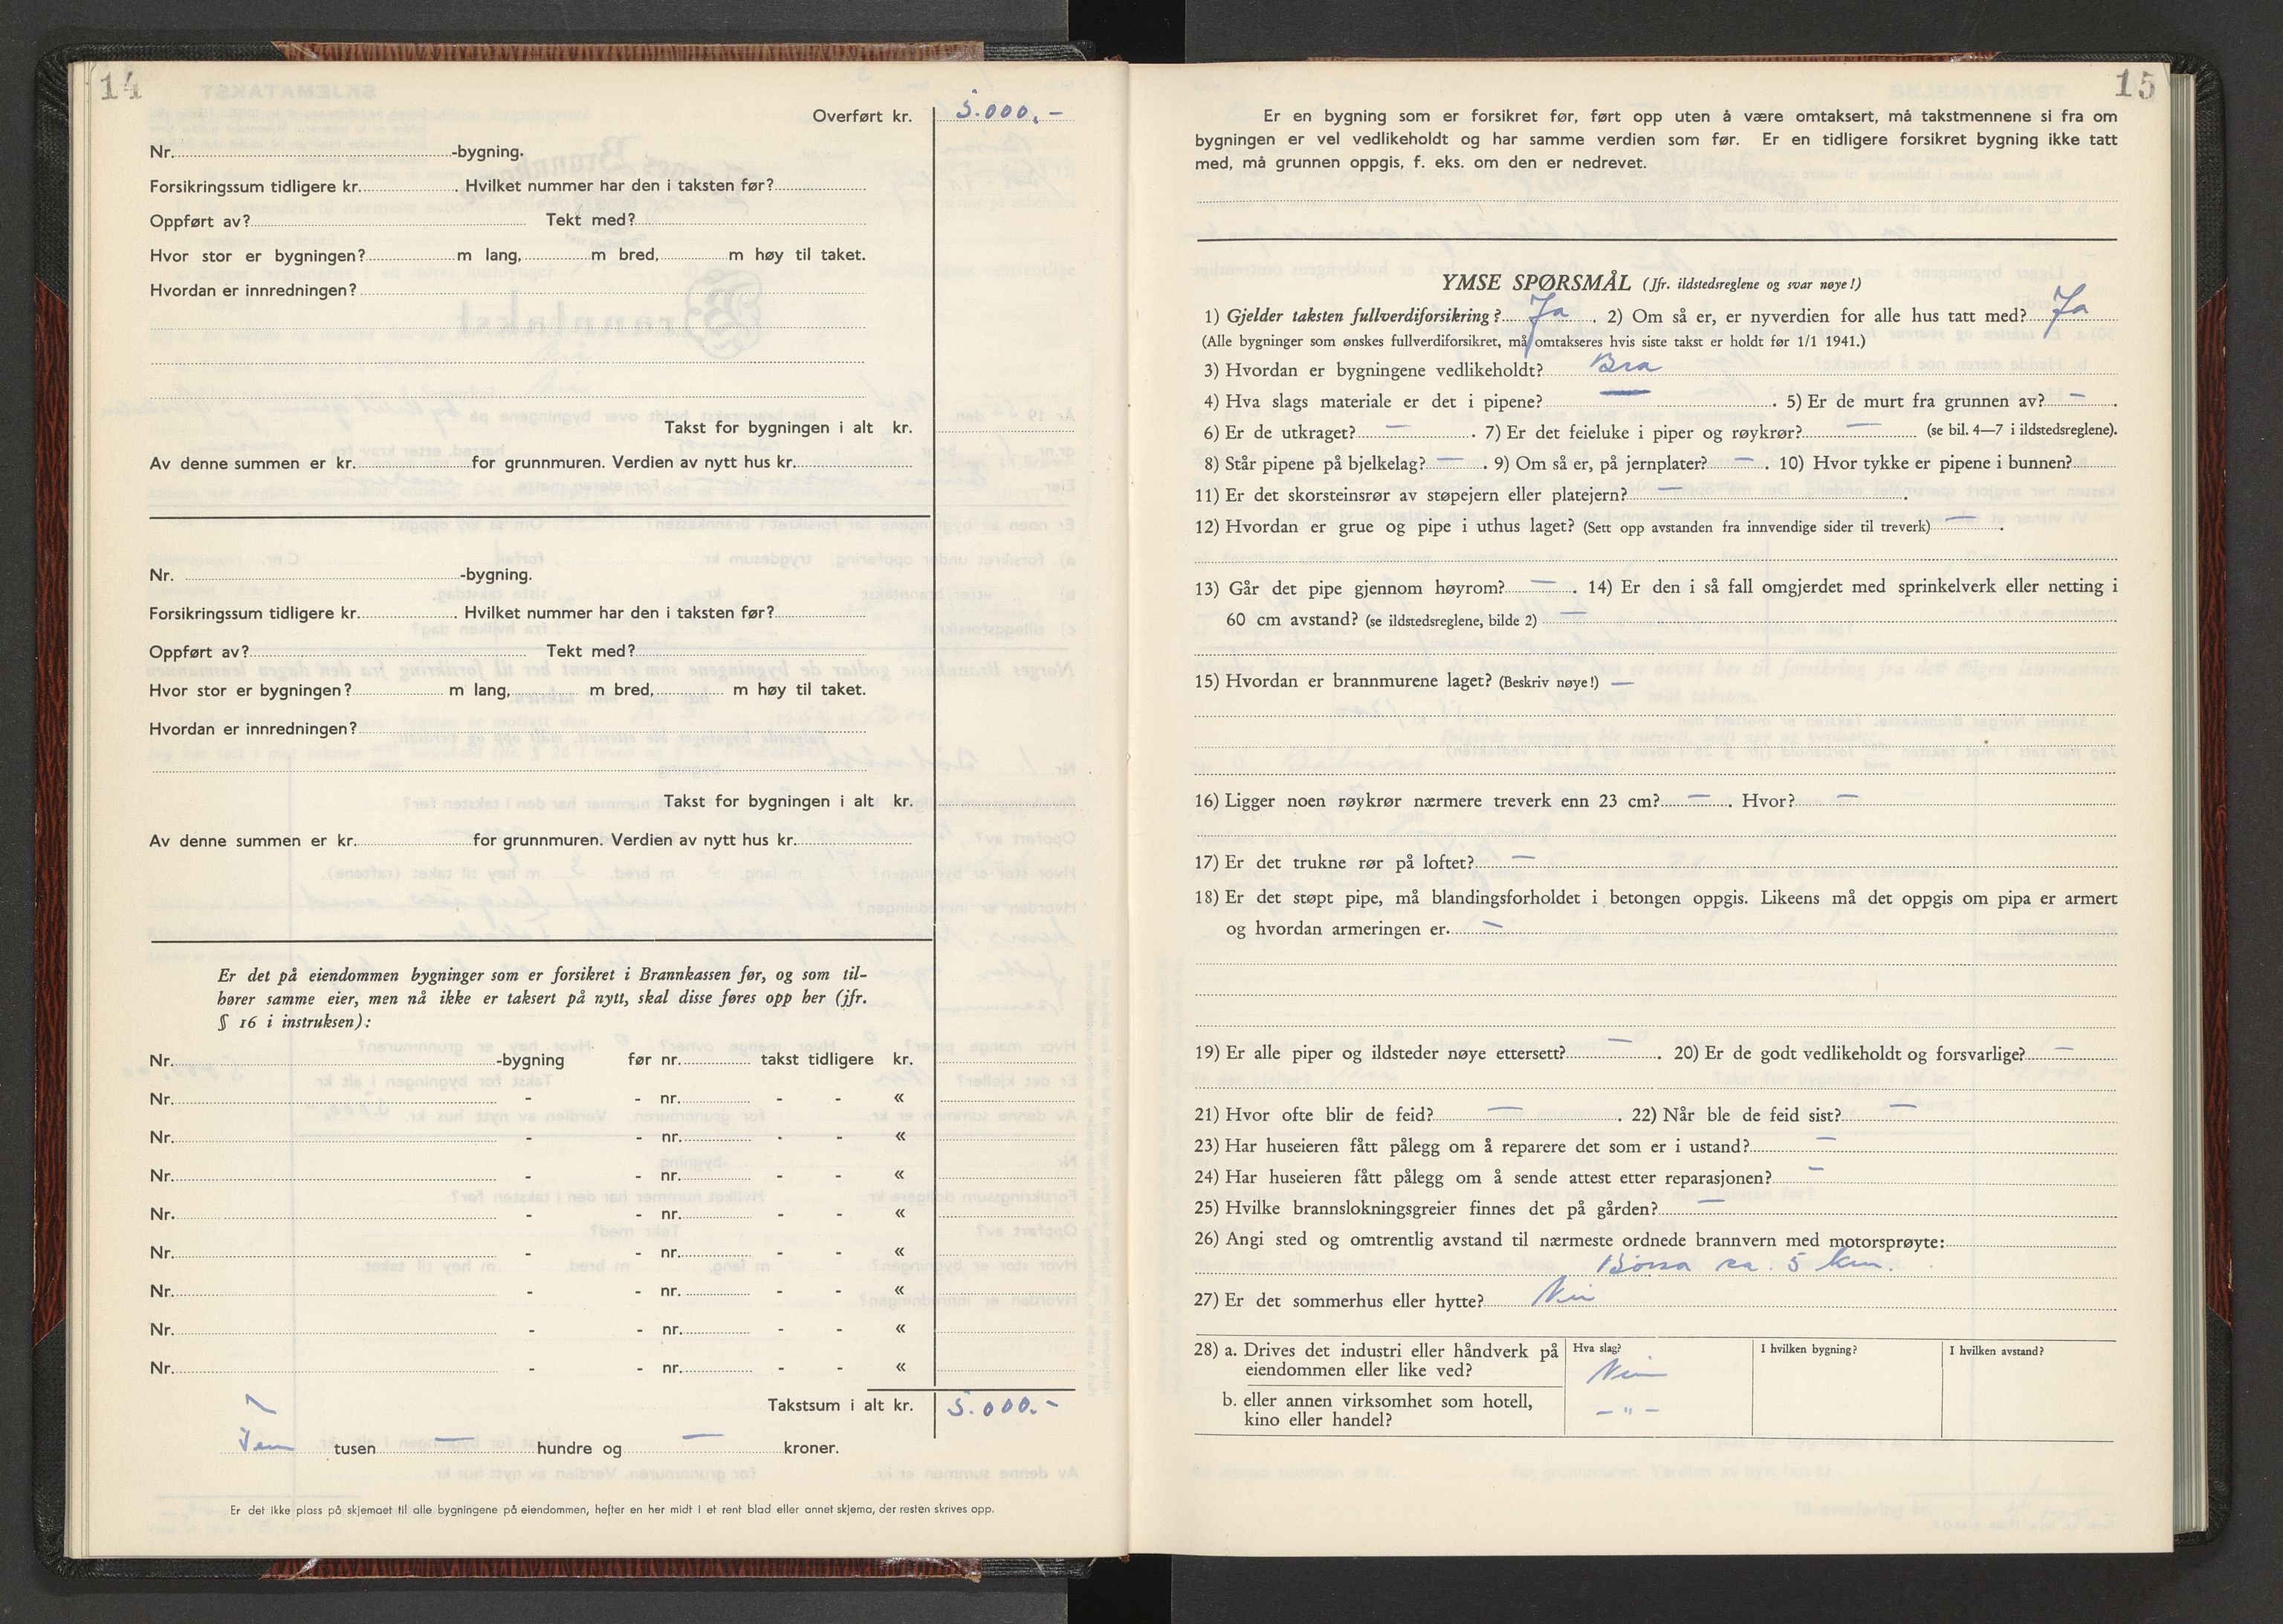 14
Overført kr. 5.000.-
Nr. -bygning.
Forsikringssum tidligere kr. . Hvilket nummer har den i taksten før?
Oppført av? Tekt med?
Hvor stor er bygningen? m lang, m bred, m høy til taket.
Hvordan er innredningen?
Takst for bygningen i alt kr.
Av denne summen er kr. for grunnmuren. Verdien av nytt hus kr.
Nr. -bygning.
Forsikringssum tidligere kr. . Hvilket nummer har den i taksten før?
Oppført av? Tekt med?
Hvor stor er bygningen? m lang, m bred, m høy til taket.
Hvordan er innredningen?
Takst for bygningen i alt kr.
Av denne summen er kr. for grunnmuren. Verdien av nytt hus kr.
Er det på eiendommen bygninger som er forsikret i Brannkassen før, og som til-
hører samme eier, men nå ikke er taksert på nytt, skal disse føres opp her (jfr.
§ 16 i instruksen):
Nr. -bygning før nr. takst tidligere kr.
Nr. - - nr. - - «
Nr. - - nr. - - «
Nr. - - nr. - - «
Nr. - - nr. - - «
Nr. - - nr. - - «
Nr. - - nr. - - «
Nr. - - nr. - - «
Nr. - - nr. - - «
Takstsum i alt kr. 5.000.-
Fem tusen — hundre og — kroner.
Er det ikke plass på skjemaet til alle bygningene på eiendommen, hefter en her midt i et rent blad eller annet skjema, der resten skrives opp.
15
Er en bygning som er forsikret før, ført opp uten å være omtaksert, må takstmennene si fra om
bygningen er vel vedlikeholdt og har samme verdien som før. Er en tidligere forsikret bygning ikke tatt
med, må grunnen oppgis, f. eks. om den er nedrevet.
YMSE SPØRSMÅL (Jfr. ildstedsreglene og svar nøye!)
1) Gjelder taksten fullverdiforsikring? Ja . 2) Om så er, er nyverdien for alle hus tatt med? Ja
(Alle bygninger som ønskes fullverdiforsikret, må omtakseres hvis siste takst er holdt før 1/1 1941.)
3) Hvordan er bygningene vedlikeholdt? Bra
4) Hva slags materiale er det i pipene? — . 5) Er de murt fra grunnen av? — .
6) Er de utkraget? — . 7) Er det feieluke i piper og røykrør? — (se bil. 4—7 i ildstedsreglene).
8) Står pipene på bjelkelag? — . 9) Om så er, på jernplater? — . 10) Hvor tykke er pipene i bunnen?
11) Er det skorsteinsrør av støpejern eller platejern? — .
12) Hvordan er grue og pipe i uthus laget? (Sett opp avstanden fra innvendige sider til treverk) — .
13) Går det pipe gjennom høyrom? — . 14) Er den i så fall omgjerdet med sprinkelverk eller netting i
60 cm avstand? (se ildstedsreglene, bilde 2) —
15) Hvordan er brannmurene laget? (Beskriv nøye!) —
16) Ligger noen røykrør nærmere treverk enn 23 cm? — . Hvor? —
17) Er det trukne rør på loftet? —
18) Er det støpt pipe, må blandingsforholdet i betongen oppgis. Likeens må det oppgis om pipa er armert
og hvordan armeringen er. —
19) Er alle piper og ildsteder nøye ettersett? — . 20) Er de godt vedlikeholdt og forsvarlige? —
21) Hvor ofte blir de feid? — . 22) Når ble de feid sist? —
23) Har huseieren fått pålegg om å reparere det som er i ustand? —
24) Har huseieren fått pålegg om å sende attest etter reparasjonen? —
25) Hvilke brannslokningsgreier finnes det på gården? —
26) Angi sted og omtrentlig avstand til nærmeste ordnede brannvern med motorsprøyte:
Børsa ca. 5 km.
27) Er det sommerhus eller hytte? Nei
28) a. Drives det industri eller håndverk på Hva slag? I hvilken bygning? I hvilken avstand?
eiendommen eller like ved? Nei
b. eller annen virksomhet som hotell, — " —
kino eller handel?